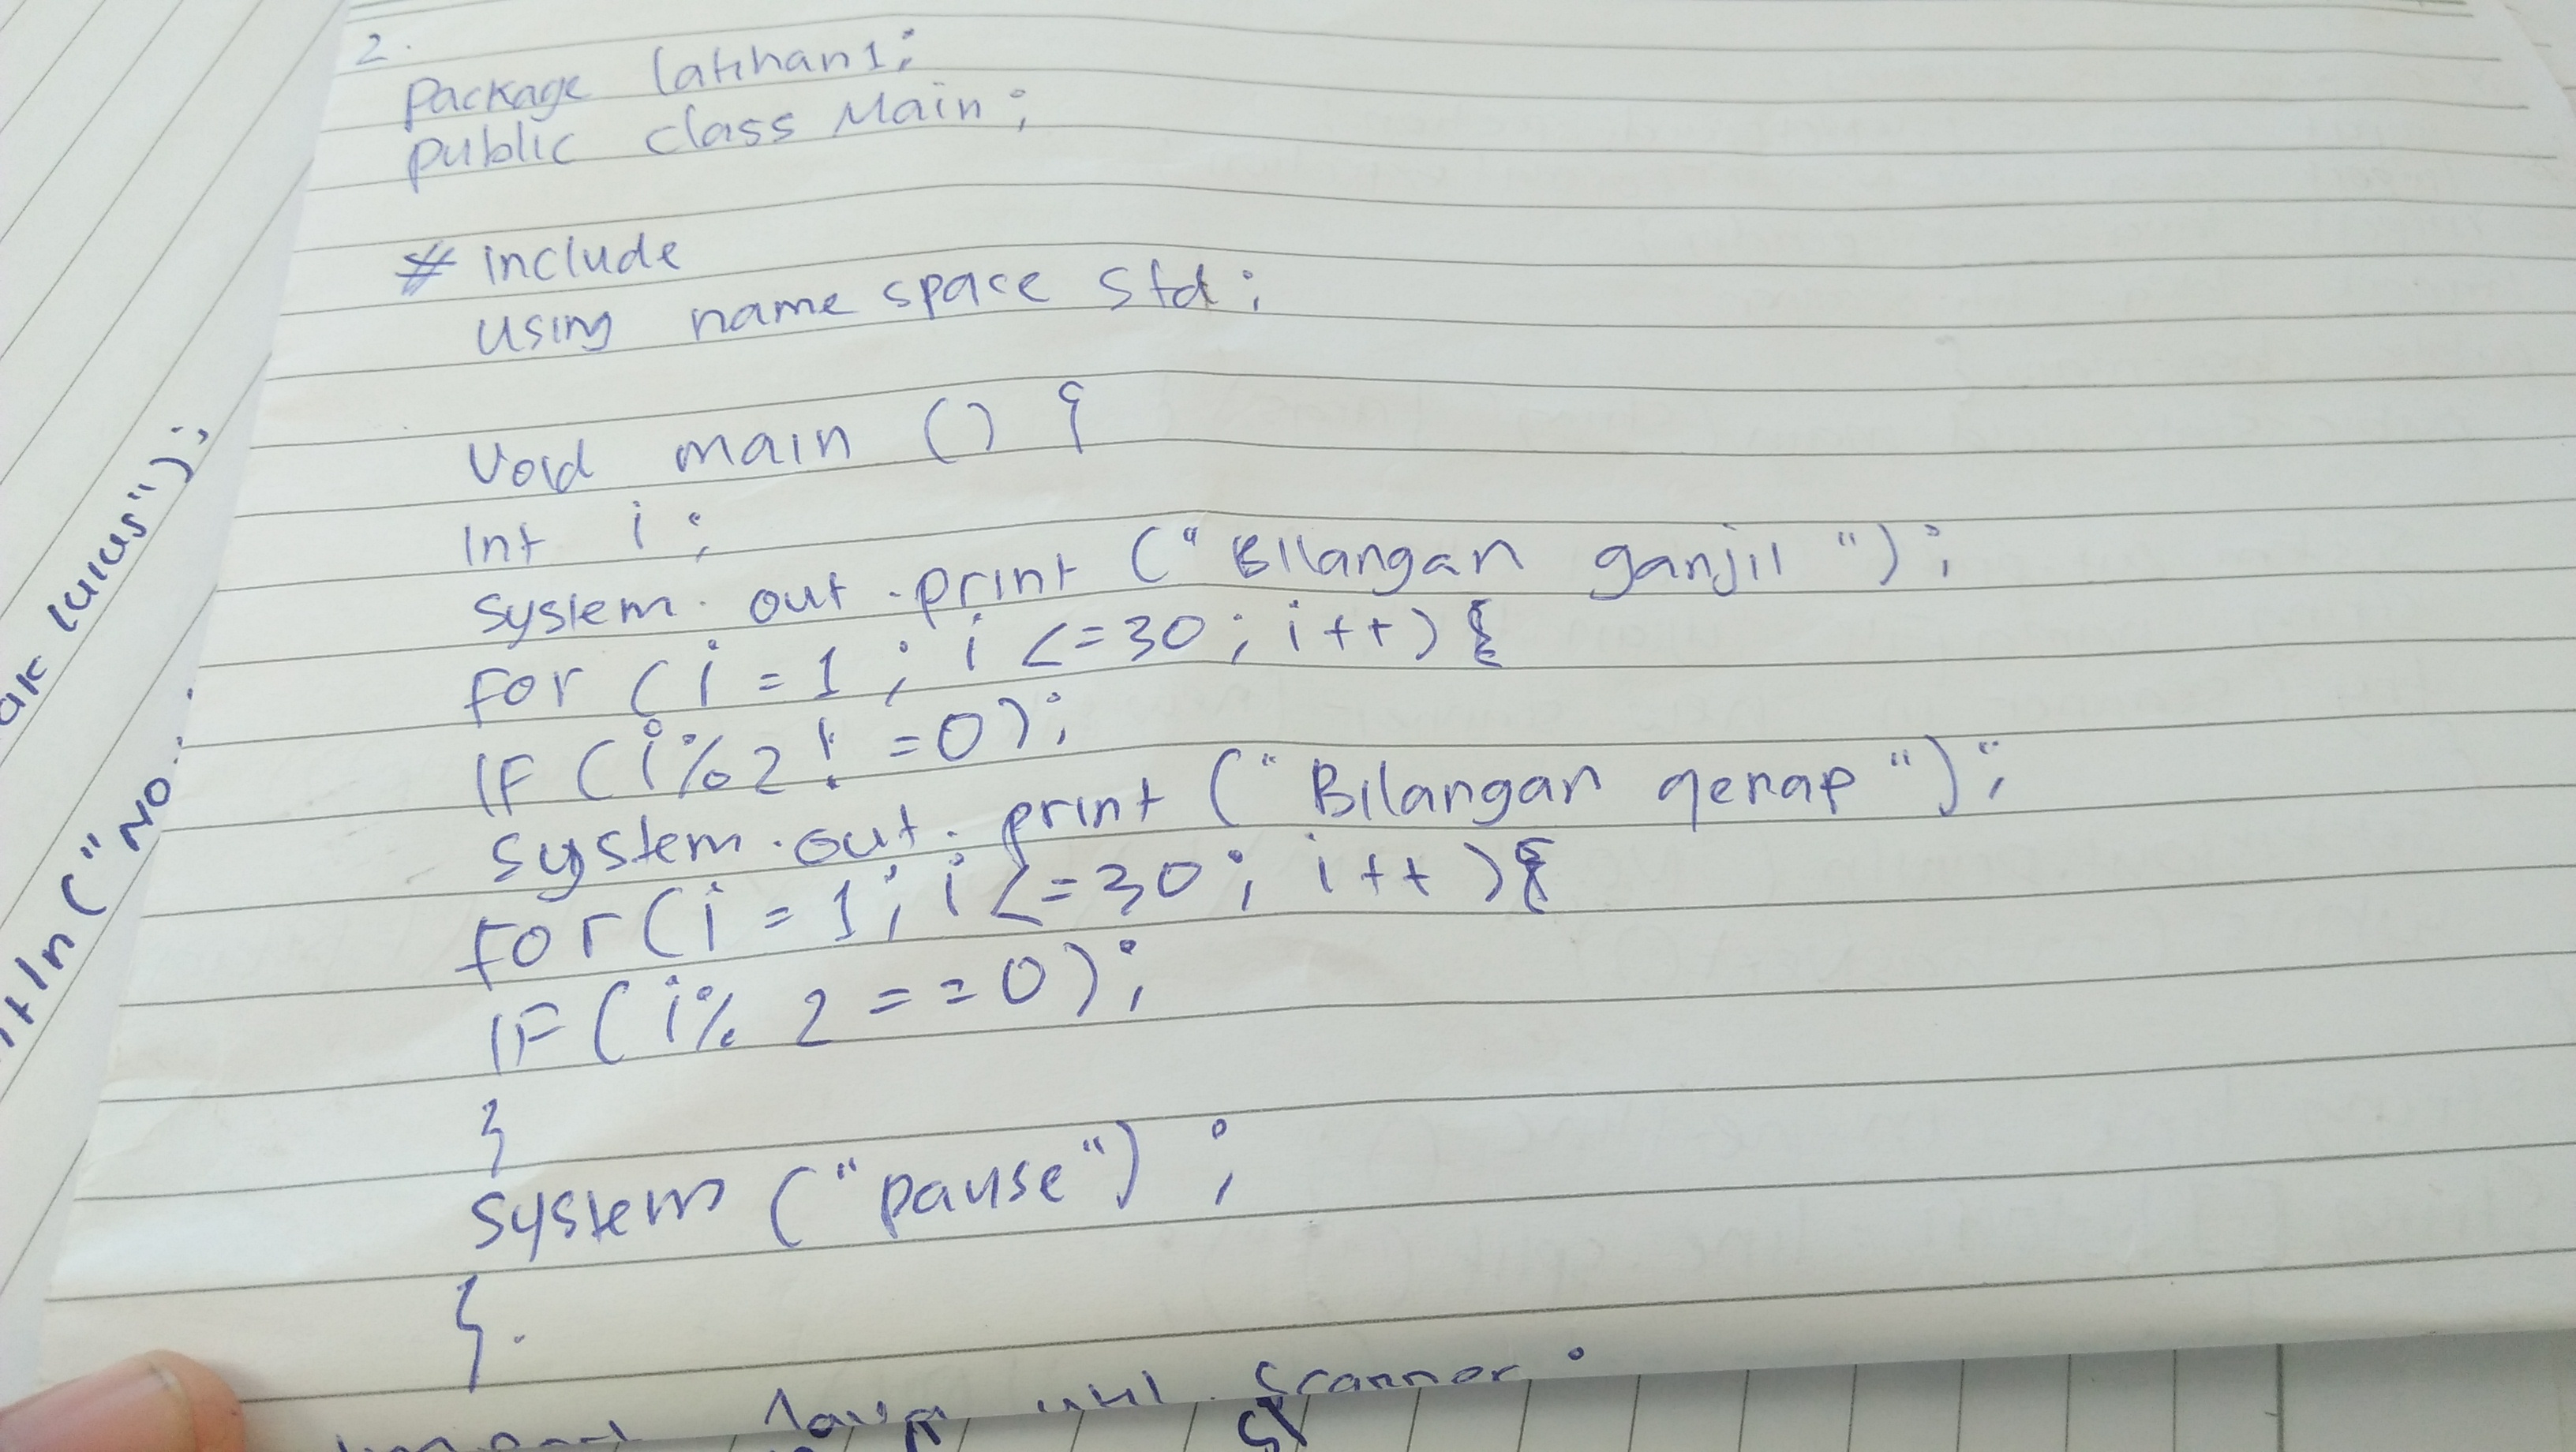 2.
Package latihan1;
public class Main;
# include
using name space std;
Void main () {
Int i;
System. out .print ("Bilangan ganjil ");
for ( i = 1 ; i <=30 ; i++) {
IF ( i%2 ! =0);
System.out. print ("Bilangan genap ");
for( i = 1; i <=30; i++ ){
IF( i% 2 ==0);
}
System ("pause") ;
}.
Java util. Scanner;
ak lulus");
ntln ("No :